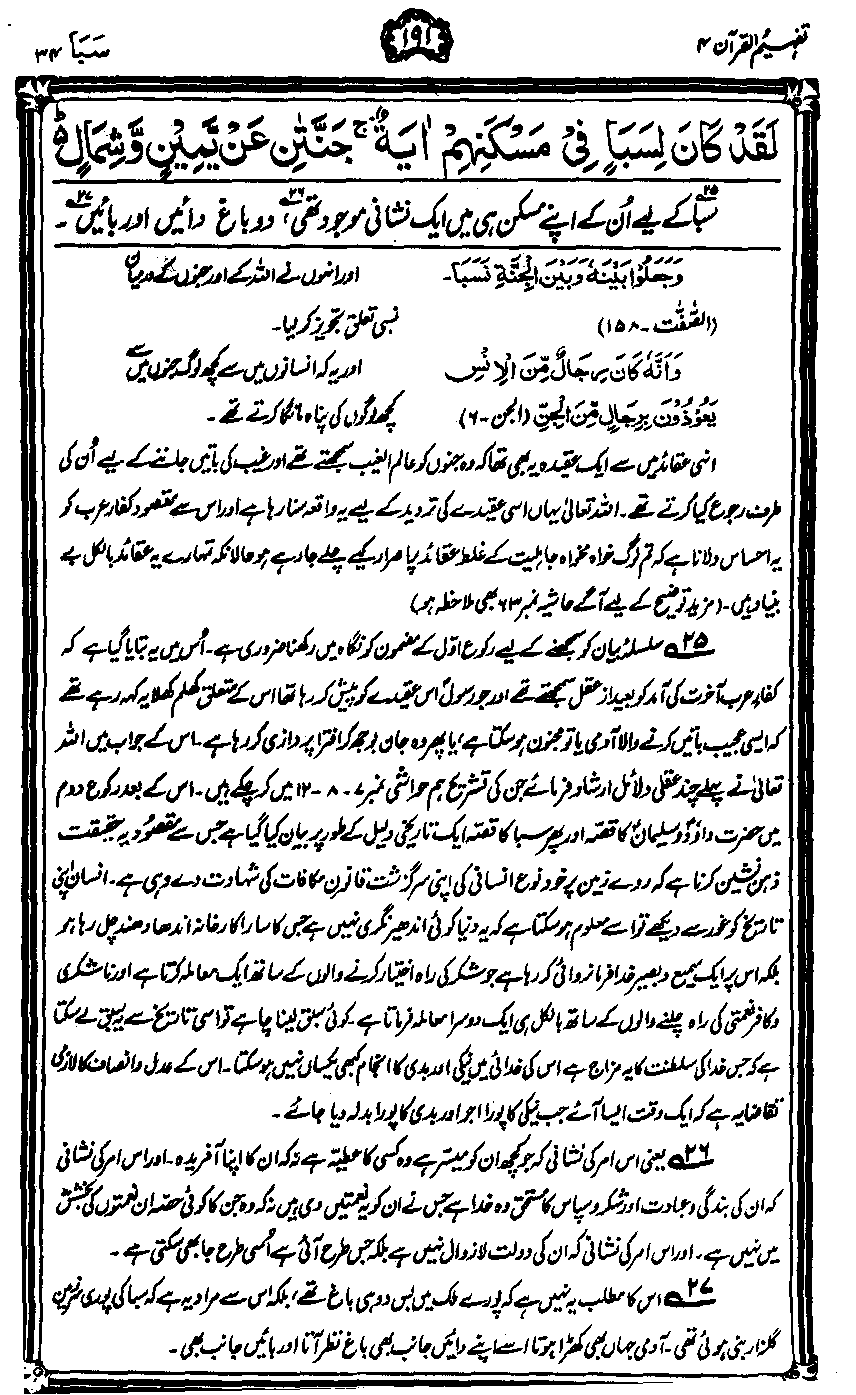 تفہیم القرآن ۴
۱۹۱
سَبَا ۳۴
لَقَدْ كَانَ لِسَبَاٍ فِیْ مَسْكَنِهِمْ اٰیَةٌ ۚ جَنَّتٰنِ عَنْ یَّمِیْنٍ وَّشِمَالٍ ؕ۬
سبا۲۵ کے لیے اُن کے اپنے مسکن ہی میں ایک نشانی موجود تھی۲۶، دو باغ دائیں اور بائیں۲۷۔
وَجَعَلُوْا بَیْنَهٗ وَبَیْنَ الْجِنَّةِ نَسَبًا۔ اور انہوں نے اللہ کے اور جنوں کے درمیان
(الصّٰفّٰت۔ ۱۵۸) نسبی تعلق تجویز کر لیا۔
وَاَنَّهٗ كَانَ رِجَالٌ مِّنَ الْاِنْسِ اور یہ کہ انسانوں میں سے کچھ لوگ جنوں میں سے
یَعُوْذُوْنَ بِرِجَالٍ مِّنَ الْجِنِّ (الجن۔ ۶) کچھ لوگوں کی پناہ مانگا کرتے تھے۔
انہی عقائد میں سے ایک عقیدہ یہ بھی تھا کہ وہ جنوں کو عالم الغیب سمجھتے تھے اور غیب کی باتیں جاننے کے لیے اُن کی
طرف رجوع کیا کرتے تھے۔ اللہ تعالیٰ یہاں اسی عقیدے کی تردید کے لیے یہ واقعہ سنا رہا ہے اور اس سے مقصود کفار عرب کو
یہ احساس دلانا ہے کہ تم لوگ خواہ مخواہ جاہلیت کے غلط عقائد پر اصرار کیے چلے جا رہے ہو حالانکہ تمہارے یہ عقائد بالکل بے
بنیاد ہیں۔ (مزید توضیح کے لیے آگے حاشیہ نمبر ۶۳ بھی ملاحظہ ہو)
۲۵ سلسلۂ بیان کو سمجھنے کے لیے رکوع اوّل کے مضمون کو نگاہ میں رکھنا ضروری ہے۔ اُس میں یہ بتایا گیا ہے کہ
کفارِ عرب آخرت کی آمد کو بعید از عقل سمجھتے تھے اور جو رسولؐ اس عقیدے کو پیش کر رہا تھا اس کے متعلق کھلم کھلا یہ کہہ رہے تھے
کہ ایسی عجیب باتیں کرنے والا آدمی یا تو مجنون ہو سکتا ہے، یا پھر وہ جان بوجھ کر افترا پردازی کر رہا ہے۔ اس کے جواب میں اللہ
تعالیٰ نے پہلے چند عقلی دلائل ارشاد فرمائے جن کی تشریح ہم حواشی نمبر ۷ - ۸ - ۱۲ میں کر چکے ہیں۔ اس کے بعد رکوع دوم
میں حضرت داؤدؑ و سلیمانؑ کا قصّہ اور پھر سبا کا قصّہ ایک تاریخی دلیل کے طور پر بیان کیا گیا ہے جس سے مقصُود یہ حقیقت
ذہن نشین کرنا ہے کہ روئے زمین پر خود نوع انسانی کی اپنی سرگزشت قانون مکافات کی شہادت دے رہی ہے۔ انسان اپنی
تاریخ کو غور سے دیکھے تو اسے معلوم ہو سکتا ہے کہ یہ دنیا کوئی اندھیر نگری نہیں ہے جس کا سارا کارخانہ اندھا دھند چل رہا ہو
بلکہ اس پر ایک سمیع و بصیر خدا فرمانروائی کر رہا ہے جو شکر کی راہ اختیار کرنے والوں کے ساتھ ایک معاملہ کرتا ہے اور ناشکری
و کافر نعمتی کی راہ چلنے والوں کے ساتھ بالکل ہی ایک دوسرا معاملہ فرماتا ہے۔ کوئی سبق لینا چاہے تو اسی تاریخ سے یہ سبق لے سکتا
ہے کہ جس خدا کی سلطنت کا یہ مزاج ہے اس کی خدائی میں نیکی اور بدی کا انجام کبھی یکساں نہیں ہو سکتا۔ اس کے عدل و انصاف کا لازمی
تقاضا یہ ہے کہ ایک وقت ایسا آئے جب نیکی کا پورا اجر اور بدی کا پورا بدلہ دیا جائے۔
۲۶ یعنی اس امر کی نشانی کہ جو کچھ ان کو میسر ہے وہ کسی کا عطیہ ہے نہ کہ ان کا اپنا آفریدہ۔ اور اس امر کی نشانی
کہ ان کی بندگی و عبادت اور شکر و سپاس کا مستحق وہ خدا ہے جس نے ان کو یہ نعمتیں دی ہیں نہ کہ وہ جن کا کوئی حصہ ان نعمتوں کی بخشش
میں نہیں ہے۔ اور اس امر کی نشانی کہ ان کی دولت لازوال نہیں ہے بلکہ جس طرح آئی ہے اُسی طرح جا بھی سکتی ہے۔
۲۷ اس کا مطلب یہ نہیں ہے کہ پورے ملک میں بس دو ہی باغ تھے، بلکہ اس سے مراد یہ ہے کہ سبا کی پوری سرزمین
گلزار بنی ہوئی تھی۔ آدمی جہاں بھی کھڑا ہوتا اسے اپنے دائیں جانب بھی باغ نظر آتا اور بائیں جانب بھی۔